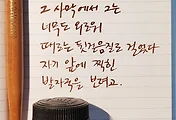 그 사막에서 그는
너무도 외로워
때로는 뒷걸음질로 걸었다
자기 앞에 찍힌
발자국을 보려고.